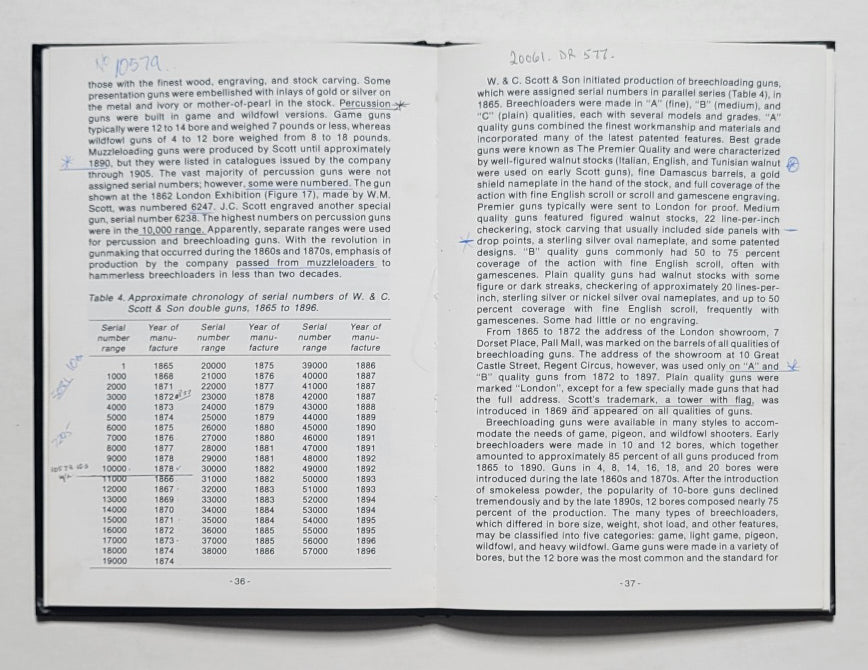 No 10579.
those with the finest wood, engraving, and stock carving. Some
presentation guns were embellished with inlays of gold or silver on
the metal and ivory or mother-of-pearl in the stock. Percussion
guns were built in game and wildfowl versions. Game guns
typically were 12 to 14 bore and weighed 7 pounds or less, whereas
wildfowl guns of 4 to 12 bore weighed from 8 to 18 pounds.
Muzzleloading guns were produced by Scott until approximately
1890, but they were listed in catalogues issued by the company
through 1905. The vast majority of percussion guns were not
assigned serial numbers; however, some were numbered. The gun
shown at the 1862 London Exhibition (Figure 17), made by W.M.
Scott, was numbered 6247. J.C. Scott engraved another special
gun, serial number 6238. The highest numbers on percussion guns
were in the 10,000 range. Apparently, separate ranges were used
for percussion and breechloading guns. With the revolution in
gunmaking that occurred during the 1860s and 1870s, emphasis of
production by the company passed from muzzleloaders to
hammerless breechloaders in less than two decades.
Table 4. Approximate chronology of serial numbers of W. & C.
Scott & Son double guns, 1865 to 1896.
Serial Year of Serial Year of Serial Year of
number manu- number manu- number manu-
range facture range facture range facture
1 1865 20000 1875 39000 1886
1000 1868 21000 1876 40000 1887
2000 1871 22000 1877 41000 1887
3000 1872 23000 1878 42000 1887
4000 1873 24000 1879 43000 1888
5000 1874 25000 1879 44000 1889
6000 1875 26000 1880 45000 1890
7000 1876 27000 1880 46000 1891
8000 1877 28000 1881 47000 1891
9000 1878 29000 1881 48000 1892
10000 1878 30000 1882 49000 1892
11000 1866 31000 1882 50000 1893
12000 1867 32000 1883 51000 1893
13000 1869 33000 1883 52000 1894
14000 1870 34000 1884 53000 1894
15000 1871 35000 1884 54000 1895
16000 1872 36000 1885 55000 1895
17000 1873 37000 1885 56000 1896
18000 1874 38000 1886 57000 1896
19000 1874
- 36 -
20061. DR 577.
W. & C. Scott & Son initiated production of breechloading guns,
which were assigned serial numbers in parallel series (Table 4), in
1865. Breechloaders were made in "A" (fine), "B" (medium), and
"C" (plain) qualities, each with several models and grades. "A"
quality guns combined the finest workmanship and materials and
incorporated many of the latest patented features. Best grade
guns were known as The Premier Quality and were characterized
by well-figured walnut stocks (Italian, English, and Tunisian walnut
were used on early Scott guns), fine Damascus barrels, a gold
shield nameplate in the hand of the stock, and full coverage of the
action with fine English scroll or scroll and gamescene engraving.
Premier guns typically were sent to London for proof. Medium
quality guns featured figured walnut stocks, 22 line-per-inch
checkering, stock carving that usually included side panels with
drop points, a sterling silver oval nameplate, and some patented
designs. "B" quality guns commonly had 50 to 75 percent
coverage of the action with fine English scroll, often with
gamescenes. Plain quality guns had walnut stocks with some
figure or dark streaks, checkering of approximately 20 lines-per-
inch, sterling silver or nickel silver oval nameplates, and up to 50
percent coverage with fine English scroll, frequently with
gamescenes. Some had little or no engraving.
From 1865 to 1872 the address of the London showroom, 7
Dorset Place, Pall Mall, was marked on the barrels of all qualities of
breechloading guns. The address of the showroom at 10 Great
Castle Street, Regent Circus, however, was used only on "A" and
"B" quality guns from 1872 to 1897. Plain quality guns were
marked "London", except for a few specially made guns that had
the full address. Scott's trademark, a tower with flag, was
introduced in 1869 and appeared on all qualities of guns.
Breechloading guns were available in many styles to accom-
modate the needs of game, pigeon, and wildfowl shooters. Early
breechloaders were made in 10 and 12 bores, which together
amounted to approximately 85 percent of all guns produced from
1865 to 1890. Guns in 4, 8, 14, 16, 18, and 20 bores were
introduced during the late 1860s and 1870s. After the introduction
of smokeless powder, the popularity of 10-bore guns declined
tremendously and by the late 1890s, 12 bores composed nearly 75
percent of the production. The many types of breechloaders,
which differed in bore size, weight, shot load, and other features,
may be classified into five categories: game, light game, pigeon,
wildfowl, and heavy wildfowl. Game guns were made in a variety of
bores, but the 12 bore was the most common and the standard for
- 37 -